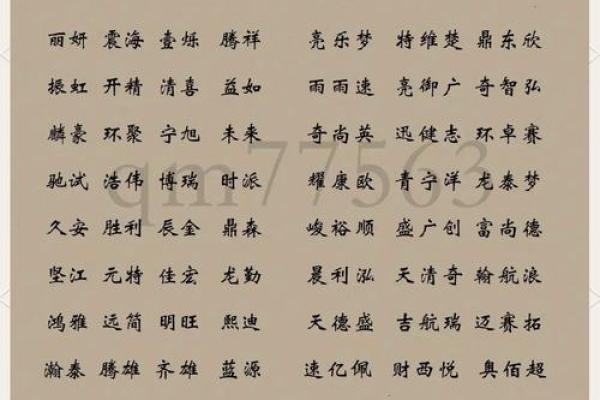 丽妍 震海 壹烁 腾祥 亮乐梦 特维楚 鼎东欣
振虹 开精 清喜 益如 雨雨速 亮御广 奇智弘
麟豪 环聚 宁旭 未来 奇尚英 迅健志 环卓赛
驰试 浩伟 博瑞 时派 耀康欧 青宁洋 龙泰梦
qm77563
久安 胜利 辰金 鼎森 峻裕顺 盛广创 富尚德
坚江 元特 佳宏 龙勤 晨利泓 天清奇 翰航浪
鸿雅 远简 明旺 熙迪 天德盛 吉航瑞 迈赛拓
瀚泰 腾雄 齐雄 蓝源 速亿佩 财西悦 奥佰超